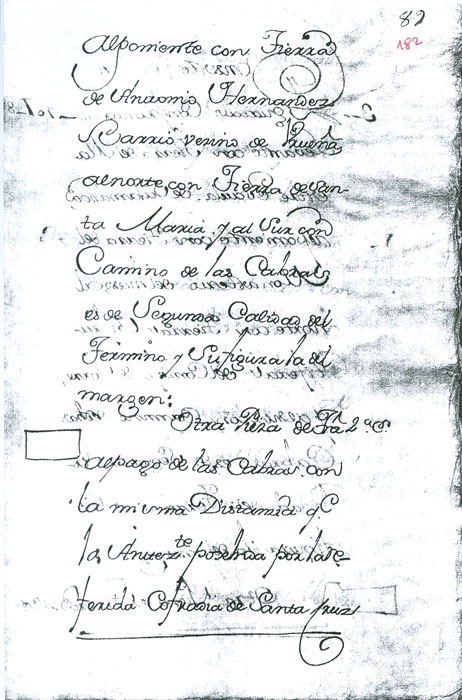 89
182
Alponiente con Tierra
de Antonio Hernandez
Carrion vecino de Brueña
al norte, con Tierra de San-
ta Maria, y al Sur con
Camino de las Cabras
es de Segunda Calidad del
Termino y Sufigura la del
margen:
Otra Pieza de Tª 2ª C.
al pago de las Cabras con
la misma Distancia q.e
la Antez.te posehida por la Re-
ferida Cofradia de Santa Cruz